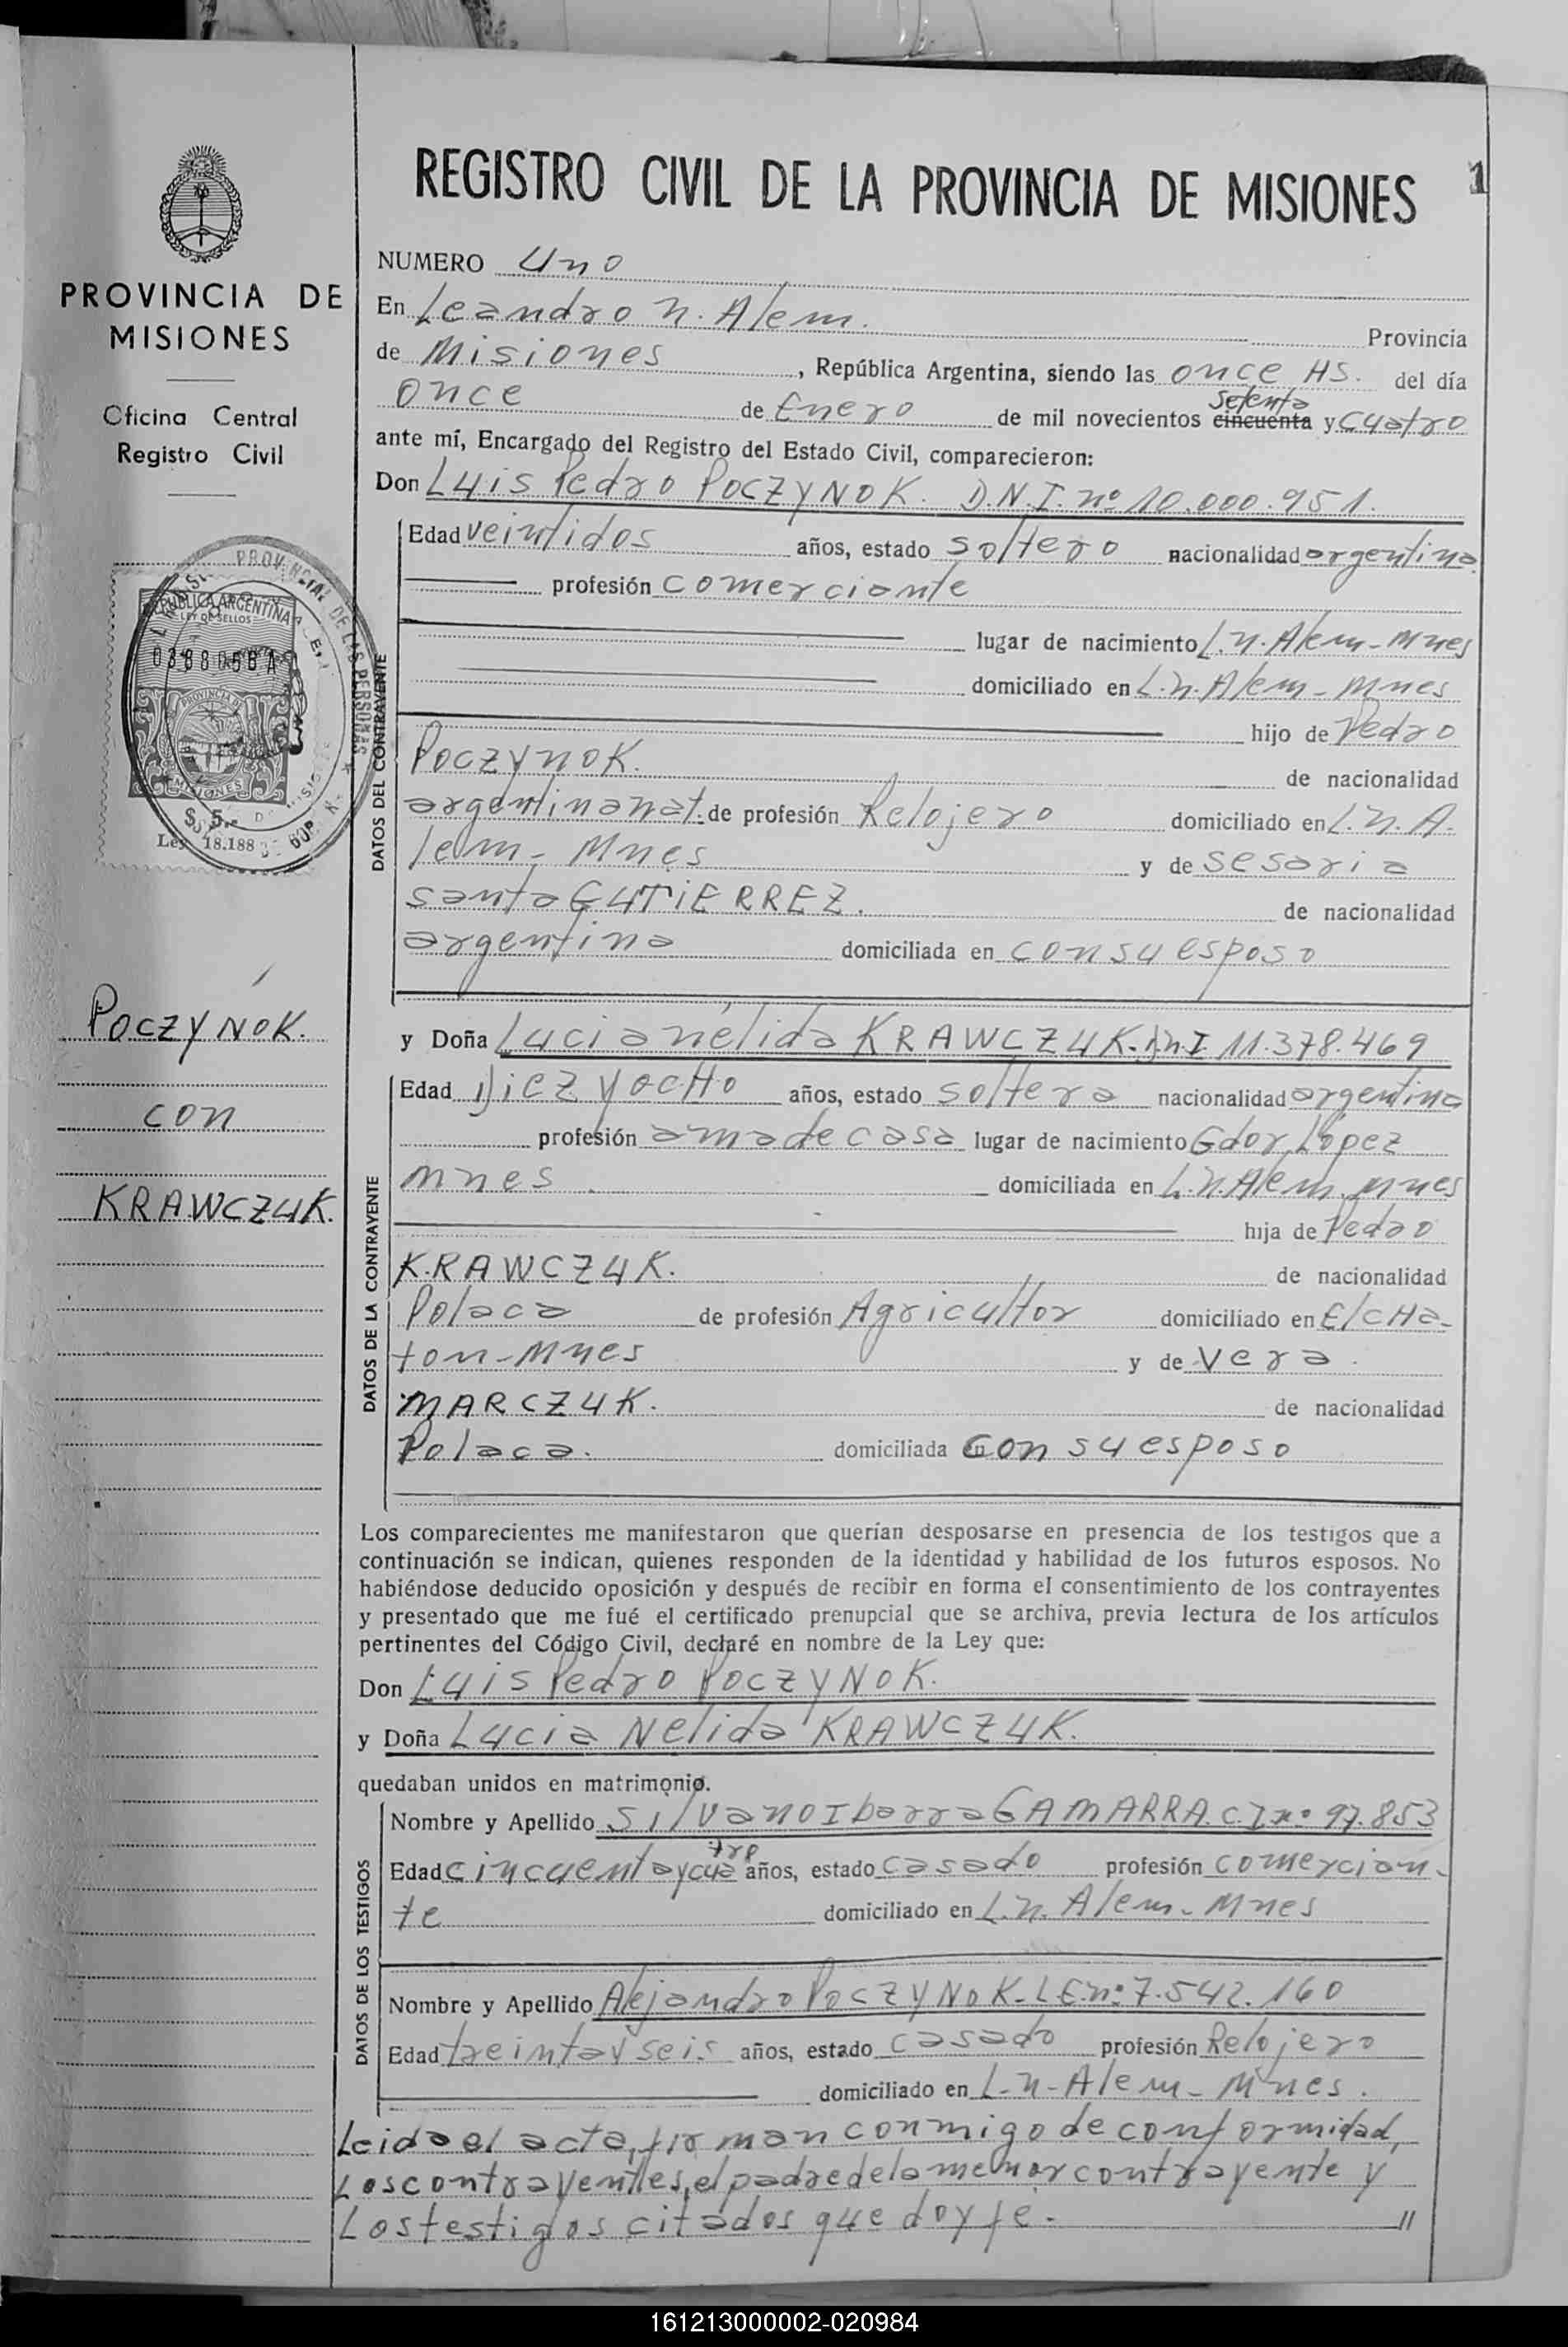 REGISTRO CIVIL DE LA PROVINCIA DE MISIONES
1
PROVINCIA DE
MISIONES
Oficina Central
Registro Civil
REPUBLICA ARGENTINA
LEY DE SELLOS
PROVINCIA
MISIONES
$ 5.-
Ley 18.188
POCZYNOK.
con
KRAWCZUK.
NUMERO Uno
En Leandro N. Alem. Provincia
de Misiones, República Argentina, siendo las once HS. del día
setenta
once de Enero de mil novecientos cincuenta y cuatro
ante mí, Encargado del Registro del Estado Civil, comparecieron:
Don Luis Pedro POCZYNOK. D.N.I. nº 10.000.951.
DATOS DEL CONTRAYENTE
Edad veintidos años, estado soltero nacionalidad argentina
profesión comerciante
lugar de nacimiento L.N.Alem-Mnes
domiciliado en L.N.Alem-Mnes
hijo de Pedro
POCZYNOK. de nacionalidad
argentina nat. de profesión Relojero domiciliado en L.N.A.
lem-Mnes y de sesaria
santa GUTIERREZ. de nacionalidad
argentina domiciliada en con su esposo
y Doña Lucia nélida KRAWCZUK. DNI 11.378.469
DATOS DE LA CONTRAYENTE
Edad Diez y ocHo años, estado soltera nacionalidad argentina
profesión ama de casa lugar de nacimiento Gdor. López
Mnes domiciliada en L.N.Alem. Mnes
hija de Pedro
KRAWCZUK. de nacionalidad
Polaca de profesión Agricultor domiciliado en El cHa-
ton-Mnes y de Vera
MARCZUK. de nacionalidad
Polaca. domiciliada en con su esposo
Los comparecientes me manifestaron que querían desposarse en presencia de los testigos que a
continuación se indican, quienes responden de la identidad y habilidad de los futuros esposos. No
habiéndose deducido oposición y después de recibir en forma el consentimiento de los contrayentes
y presentado que me fué el certificado prenupcial que se archiva, previa lectura de los artículos
pertinentes del Código Civil, declaré en nombre de la Ley que:
Don Luis Pedro POCZYNOK.
y Doña Lucia Nelida KRAWCZUK.
quedaban unidos en matrimonio.
DATOS DE LOS TESTIGOS
Nombre y Apellido Silvano Ibarra GAMARRA. C.I nº 97.853
tro
Edad cincuenta y cua años, estado casado profesión comercian-
te domiciliado en L.N. Alem-Mnes
Nombre y Apellido Alejandro POCZYNOK-L.E.nº 7.542.160
Edad treinta y seis años, estado casado profesión Relojero
domiciliado en L-N-Alem-Mnes.
Leida el acta, firman conmigo de conformidad,
Los contrayentes, el padre de la menor contrayente y
Los testigos citados que doy fe.- //
161213000002-020984